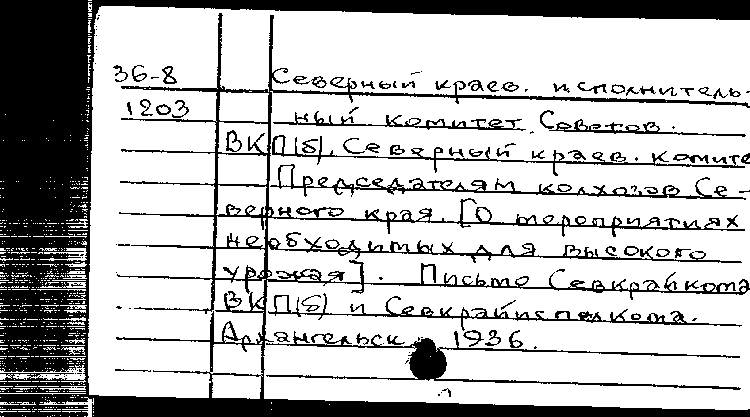 36-8 Северный краев. исполнитель-
1203 ный комитет Советов.
ВКП(б). Северный краев. комите
Председателям колхозов Се-
верного края. [О мероприятиях
необходимых для высокого
урожая]. Письмо Севкрайкома
ВКП(б) и Севкрайисполкома.
Архангельск 1936.